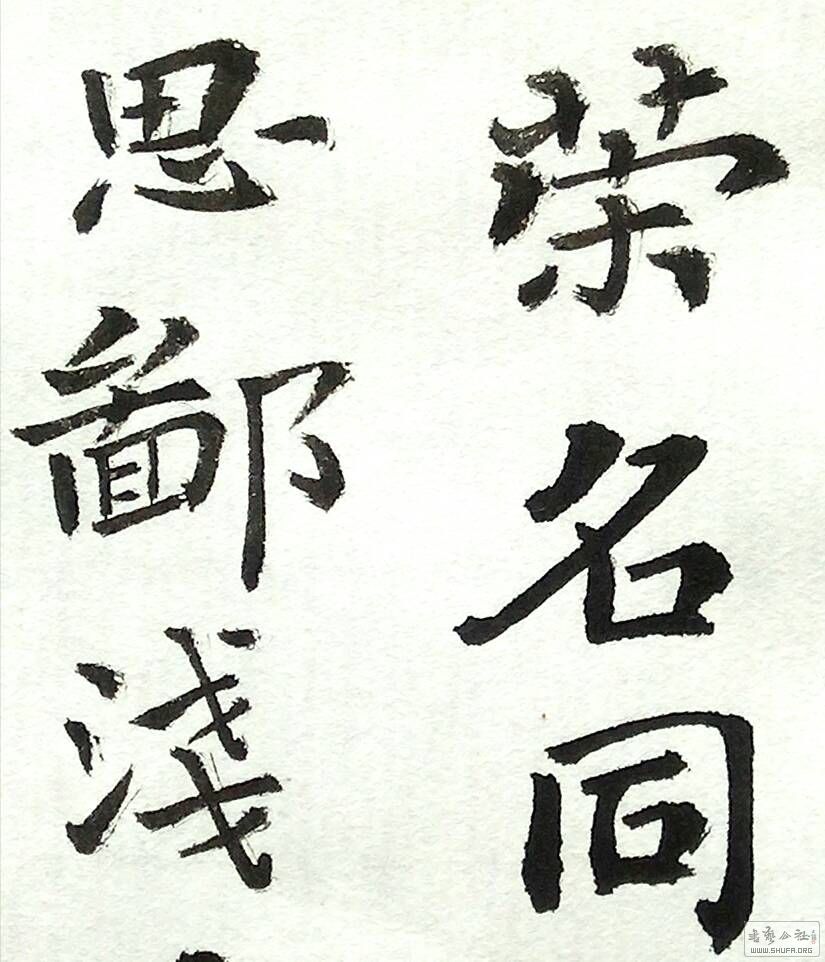 荣名同
思鄙淺
書藝公社
WWW.SHUFA.ORG